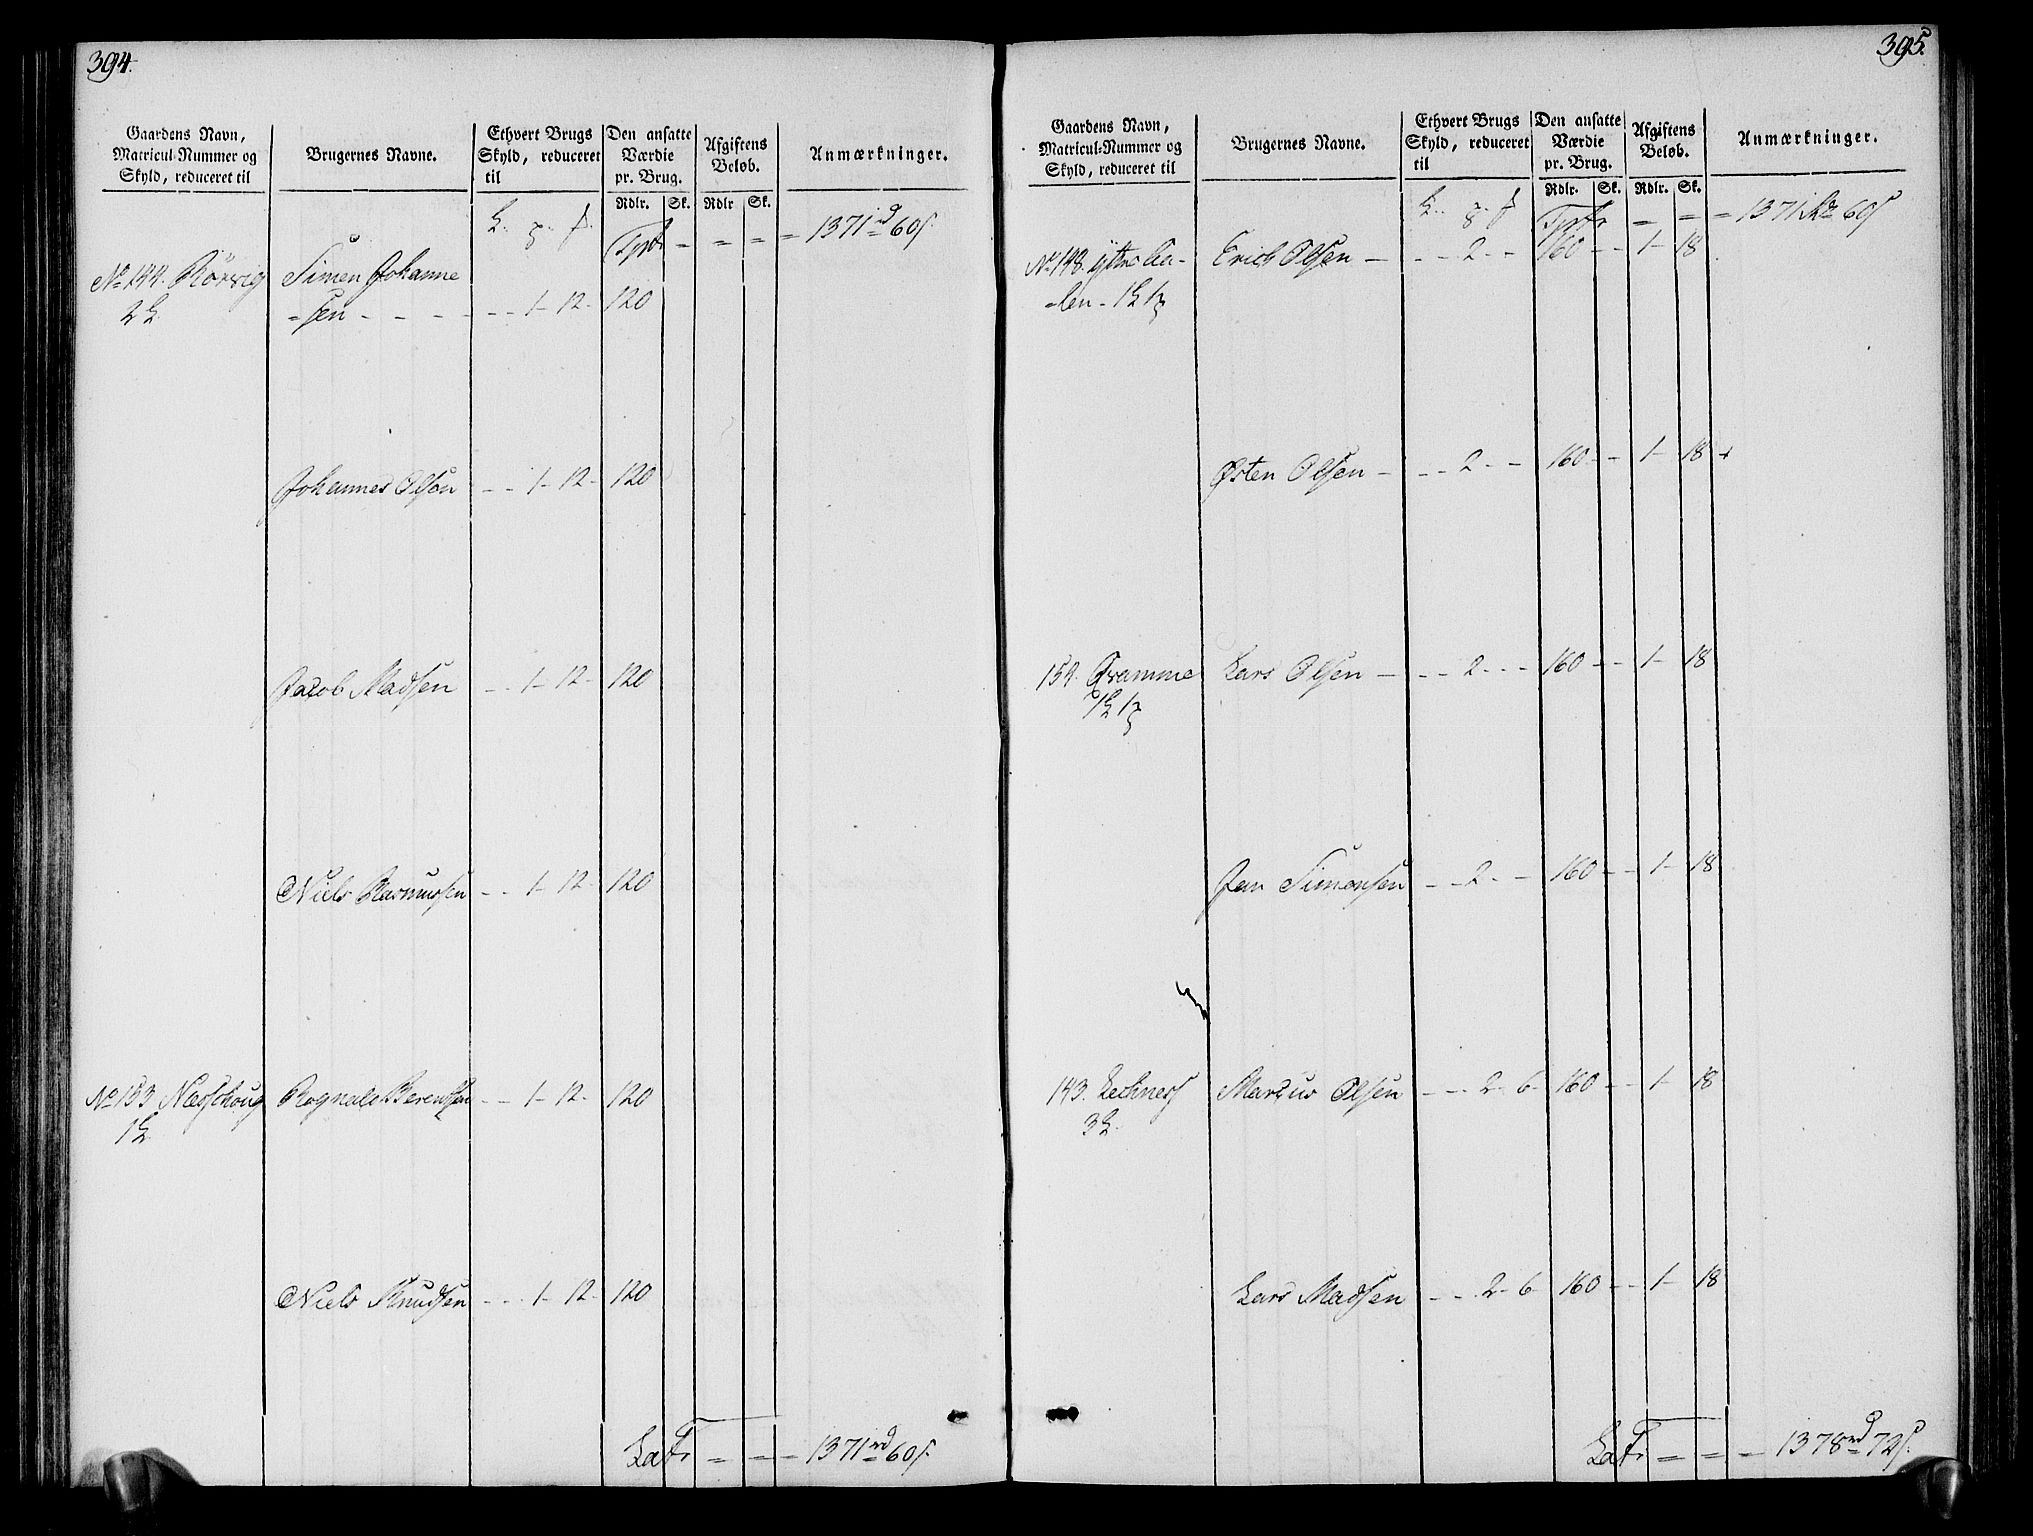 394.
Gaardens Navn, Matricul-Nummer og Skyld, reduceret til
Brugernes Navne.
Ethvert Brugs Skyld, reduceret til
Den ansatte Værdie pr. Brug.
Afgiftens Beløb.
Anmærkninger.
Rdlr. Sk. Rdlr Sk.
Tptr - - - = 1371 rd 60 s.
No 144. Rörvig Simen Johanne
2 L. -sen - - - - - - 1 - 12 - 120
Johannes Olsen - - 1 - 12 - 120
Jacob Madsen - - 1 - 12 - 120
Niels Rasmussen - - 1 - 12 - 120
No 133 Næsschoug Rognald Berentsen - - 1 - 12 - 120
1 L.
Niels Knudsen - - - 1 - 12 - 120
LaTr = - = - 1371 rd 60 s.
395.
Gaardens Navn, Matricul-Nummer og Skyld, reduceret til
Brugernes Navne.
Ethvert Brugs Skyld, reduceret til
Den ansatte Værdie pr. Brug.
Afgiftens Beløb.
Anmærkninger.
Rdlr. Sk. Rdlr. Sk.
Tptr = = = 1371 60 s
No 148. Ytre Aa- Erich Olsen - - - 2 - - 160 - - 1 - 18
-len - 1 L 1
Østen Olsen - - - 2 - - 160 - - 1 - 18
154. Gramme Lars Olsen - - - 2 - - 160 - - 1 - 18
1 L 1
Jan Simonsen - - 2 - - 160 - - 1 - 18
143. Lechness Marcus Olsen - - - 2 - 6 - 160 - - 1 - 18
3 L.
Lars Madsen - - - 2 - 6 - 160 - - 1 - 18
LaTr = = - 1378 rd 72 s.